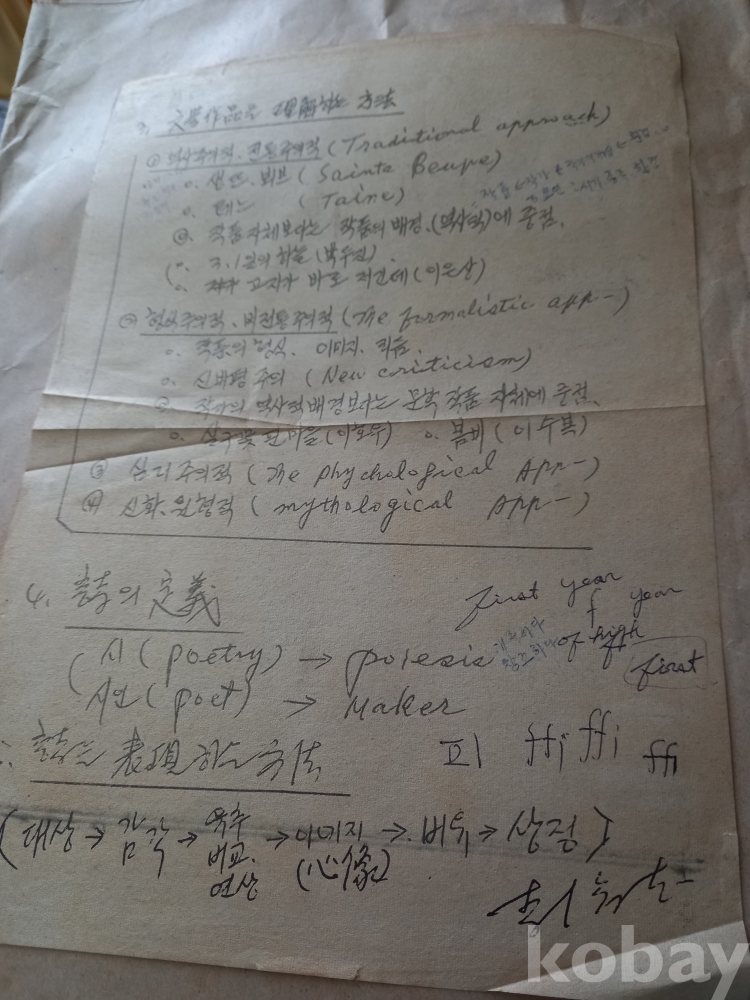 3, 文學作品을 理解하는 方法
① 역사주의적, 전통주의적 (Traditional approach)
o. 생뜨. 뵈브 (Sainte Beupe)
o. 테느 (Taine)
◎ 작품 자체보다는 작품의 배경, (역사적)에 중점.
o. 3.1월의 하늘 (박두진)
o. 고지가 바로 저긴데 (이은상)
② 형식주의적, 비전통주의적 (The formalistic app-)
o. 작품의 형식. 이미지.
o. 신비평주의 (New criticism)
◎ 작가의 역사적배경보다는 문학 작품 자체에 중점.
o. 살구꽃 핀 마을 (이호우) o. 봄비 (이수복)
③ 심리주의적 (The phychological App-)
④ 신화, 원형적 (mythological App-)
4, 詩의 定義
first year
f year
시 (poetry) → poiesis
창조하다 of high
first
시인 (poet) → Maker
詩는 表現하는 方法
ffi ffi ffi
(대상 → 감각 → 유추 비교. 연상 → 이미지 (心像) → 비유 → 상징)
kobay